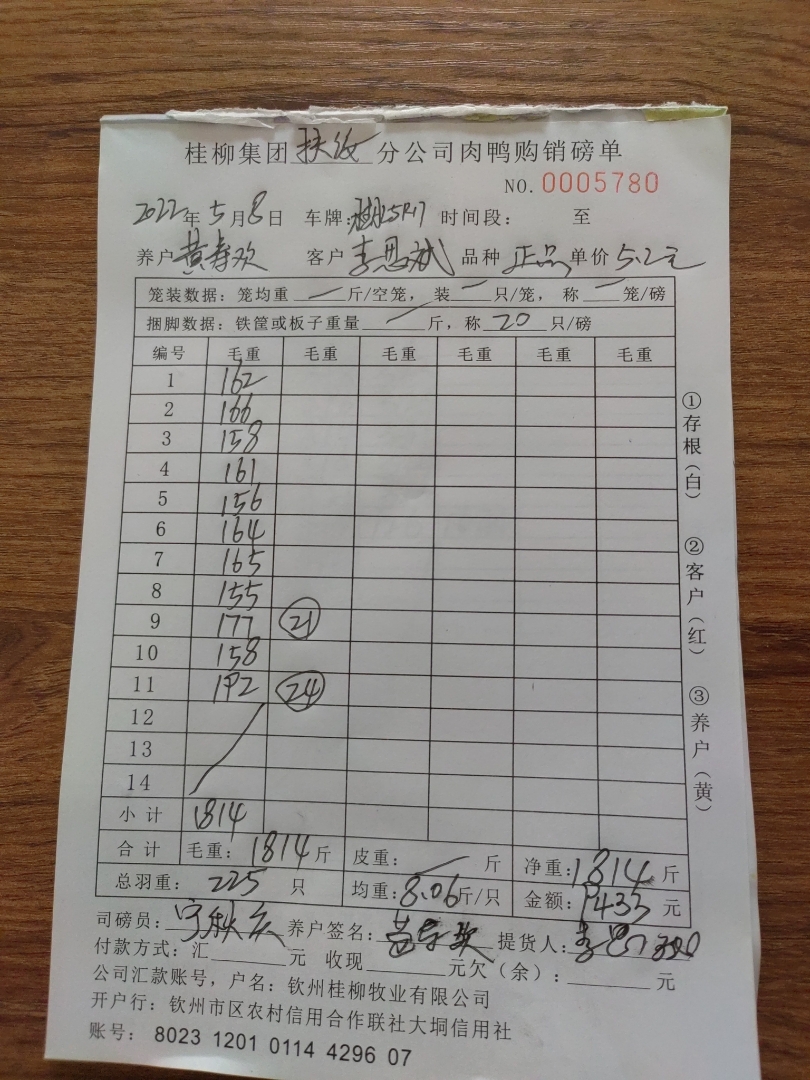 桂柳集团 扶绥 分公司肉鸭购销磅单
NO. 0005780
2022年5月8日 车牌: 时间段: 至
养户 客户 李思斌 品种 正品 单价 5.2元
笼装数据: 笼均重 — 斤/空笼, 装 — 只/笼, 称 — 笼/磅
捆脚数据: 铁筐或板子重量 — 斤, 称 20 只/磅
编号 毛重 毛重 毛重 毛重 毛重 毛重
1 162
2 166
3 158
4 161
5 156
6 164
7 165
8 155
9 177 21
10 158
11 192 24
12
13
14
小计 1814
合计 毛重: 1814 斤 皮重: — 斤 净重: 1814 斤
总羽重: 225 只 均重: 8.06 斤/只 金额: 9433 元
司磅员: 养户签名: 提货人:
付款方式: 汇 元 收现 元欠(余): 元
公司汇款账号, 户名: 钦州桂柳牧业有限公司
开户行: 钦州市区农村信用合作联社大垌信用社
账号: 8023 1201 0114 4296 07
①存根(白) ②客户(红) ③养户(黄)